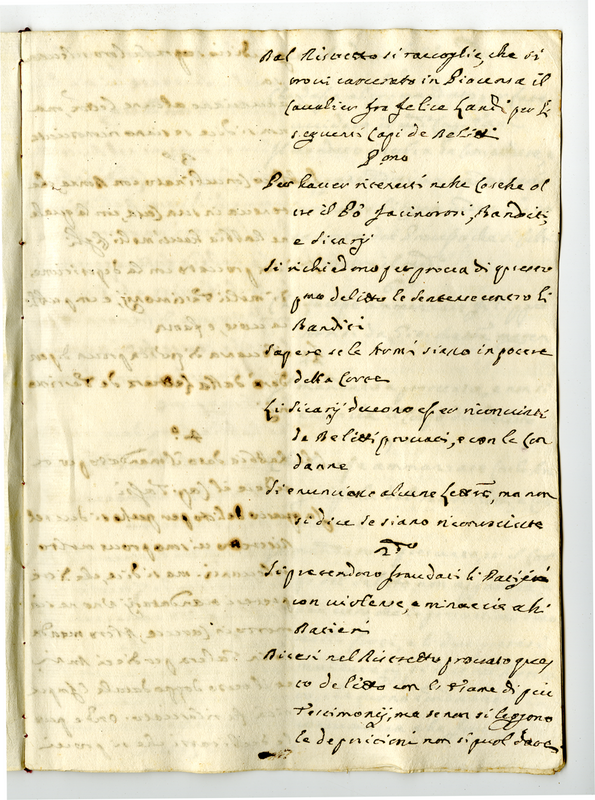 Dal Ristretto si raccoglie, che si
trovi carcerato in Piacenza il
Cavalier fra felice Landi per li
seguenti Capi de Delitti
Pmo
Per haver ricettati nelle Cosche ol
tre il Pò facinorosi, Banditi,
e Sicarij
Si richiedono per prova di questo
pmo delitto le sentenze contro li
Banditi
Sapere se le Armi siano in potere
della Corte
Li Sicarij devono esser riconvinti
de Delitti provati, e con le Con
danne
Si enunciano alcune Lettre, ma non
si dice se siano riconosciute
2do
Si pretendono fraudati li Datij
con violenze, e minaccie alli
Datieri
Dicesi nel Ristretto provato ques
to delitto con l'esame di più
Testimonij, ma se non si leggono
le deposizioni non si può dare